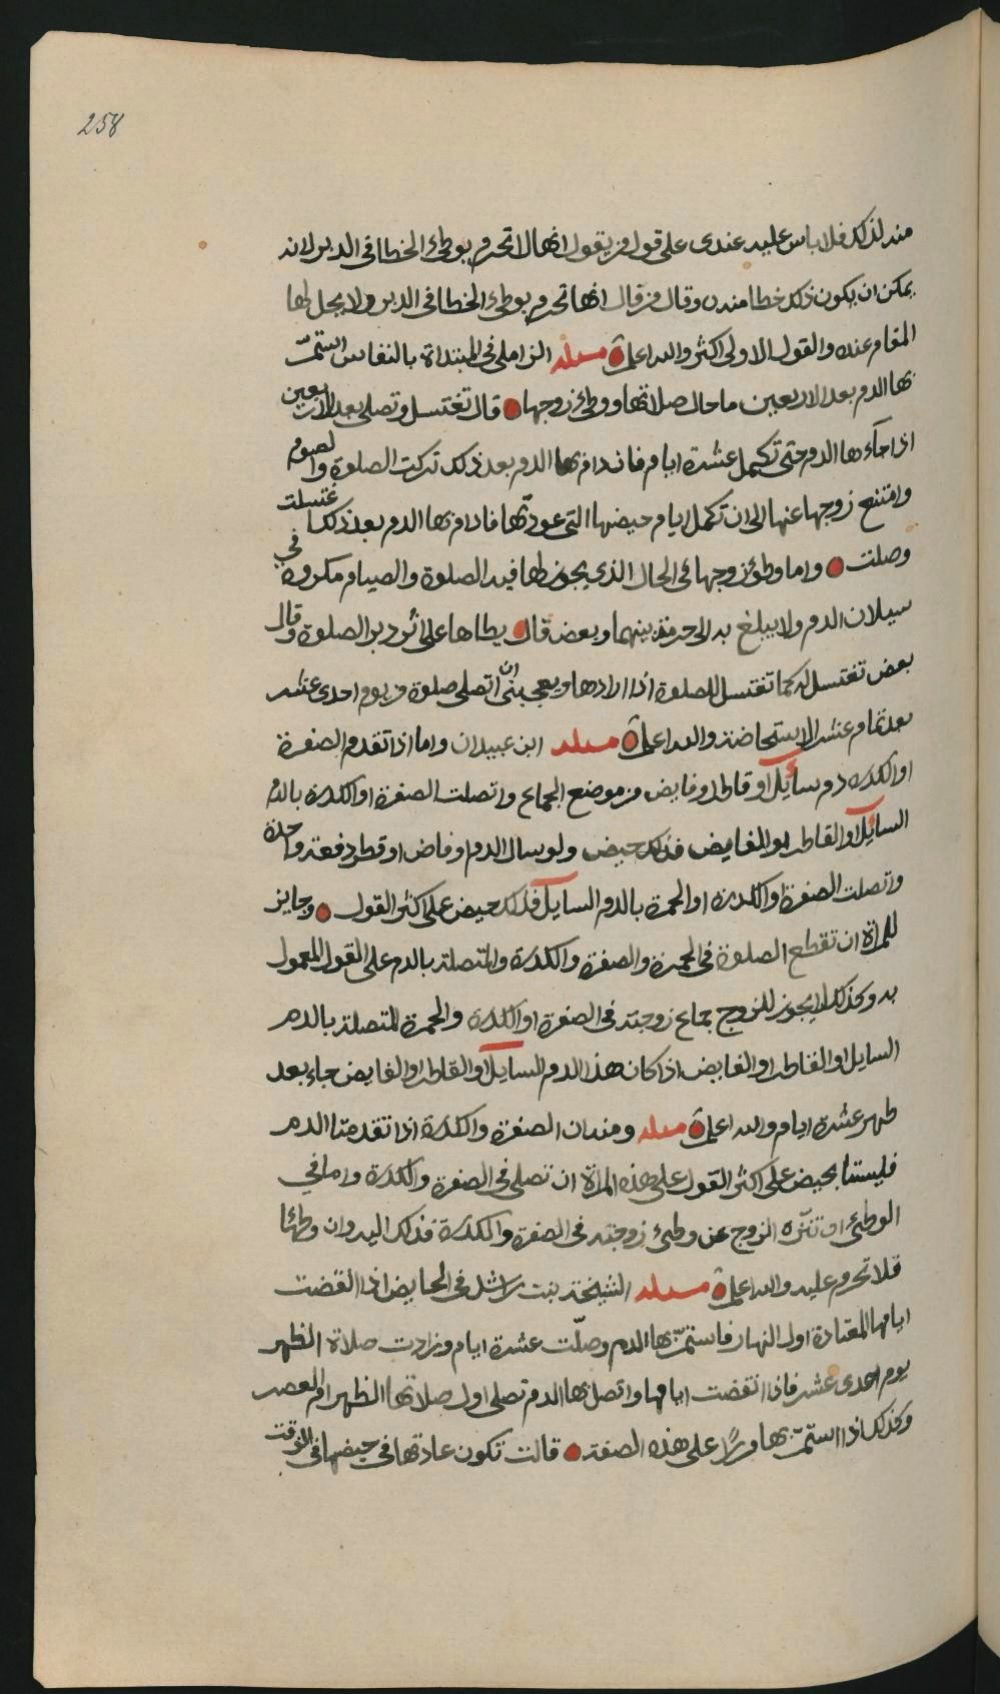 258
منه لذلك فلا باس عليه عندى على قول من يقول انها لا تحرم بوطئ الخطا فى الدبر لانه
يمكن ان يكون ذلك خطا منه وقال من قال انها تحرم بوطئ الخطا فى الدبر ولا يحل لها
المقام عنده والقول الاول اكثر والله اعلم مسئلة الزاملى فى المبتداة بالنفاس استمرّ
بها الدم بعد الاربعين ما حال صلاتها ووطئ زوجها قال تغتسل وتصلى بعد الاربعين
اذا جآءها الدم حتى تكمل عشرة ايام فان دام بها الدم بعد ذلك تركت الصلوة والصوم
وامتنع زوجها عنها الى ان تكمل ايام حيضها التى عودتها فاذا دام بها الدم بعد ذلك اغتسلت
وصلت واما وطؤ زوجها فى الحال الذى يجوز لها فيه الصلوة والصيام مكروه فى
سيلان الدم ولا يبلغ به الى حرمة بينهما وبعض قال يطاها على اثر دبر الصلوة وقال
بعض تغتسل له كما تغتسل للصلوة اذا ارادها ويعجبنى ان تصلى صلوة من يوم احدى عشر
بعد تمام عشر الاستحاضة والله اعلم مسئلة ابن عبيدان واما اذا تقدم الصفرة
او الكدرة دم سائل او قاطر او فايض من موضع الجماع واتصلت الصفرة او الكدرة بالدم
السائل او القاطر او الفايض فذلك حيض ولو سال الدم او فاض او قطر دفعة واحدة
واتصلت الصفرة او الكدرة او الحمرة بالدم السايل فذلك حيض على اكثر القول وجايز
للمراة ان تقطع الصلوة فى الحمرة والصفرة والكدرة والمتصلة بالدم على القول المعمول
به وكذلك لا يجوز للزوج جماع زوجته فى الصفرة او الكدرة والحمرة المتصلة بالدم
السايل او القاطر او الفايض اذا كان هذا الدم السايل او القاطر او الفايض جاء بعد
طهر عشرة ايام والله اعلم مسئلة ومنه ان الصفرة والكدرة اذا تقدمتا الدم
فليستا بحيض على اكثر القول على هذه المراة ان تصلى فى الصفرة والكدرة واما في
الوطئ ان تنزّه الزوج عن وطئ زوجته فى الصفرة والكدرة فذلك اليه وان وطئها
فلا تحرم عليه والله اعلم مسئلة الشيخة بنت راشد فى الحايض اذا انقضت
ايامها المعتادة اول النهار فاستمرّ بها الدم وصلّت عشرة ايام وزادت صلاة الظهر
يوم احدى عشر فاذا انقضت ايامها واتصل بها الدم تصلى اول صلاتها الظهر ام العصر
وكذلك اذا استمرّ بها مرارًا على هذه الصفة قالت تكون عادتها فى حيضها فى الوقت